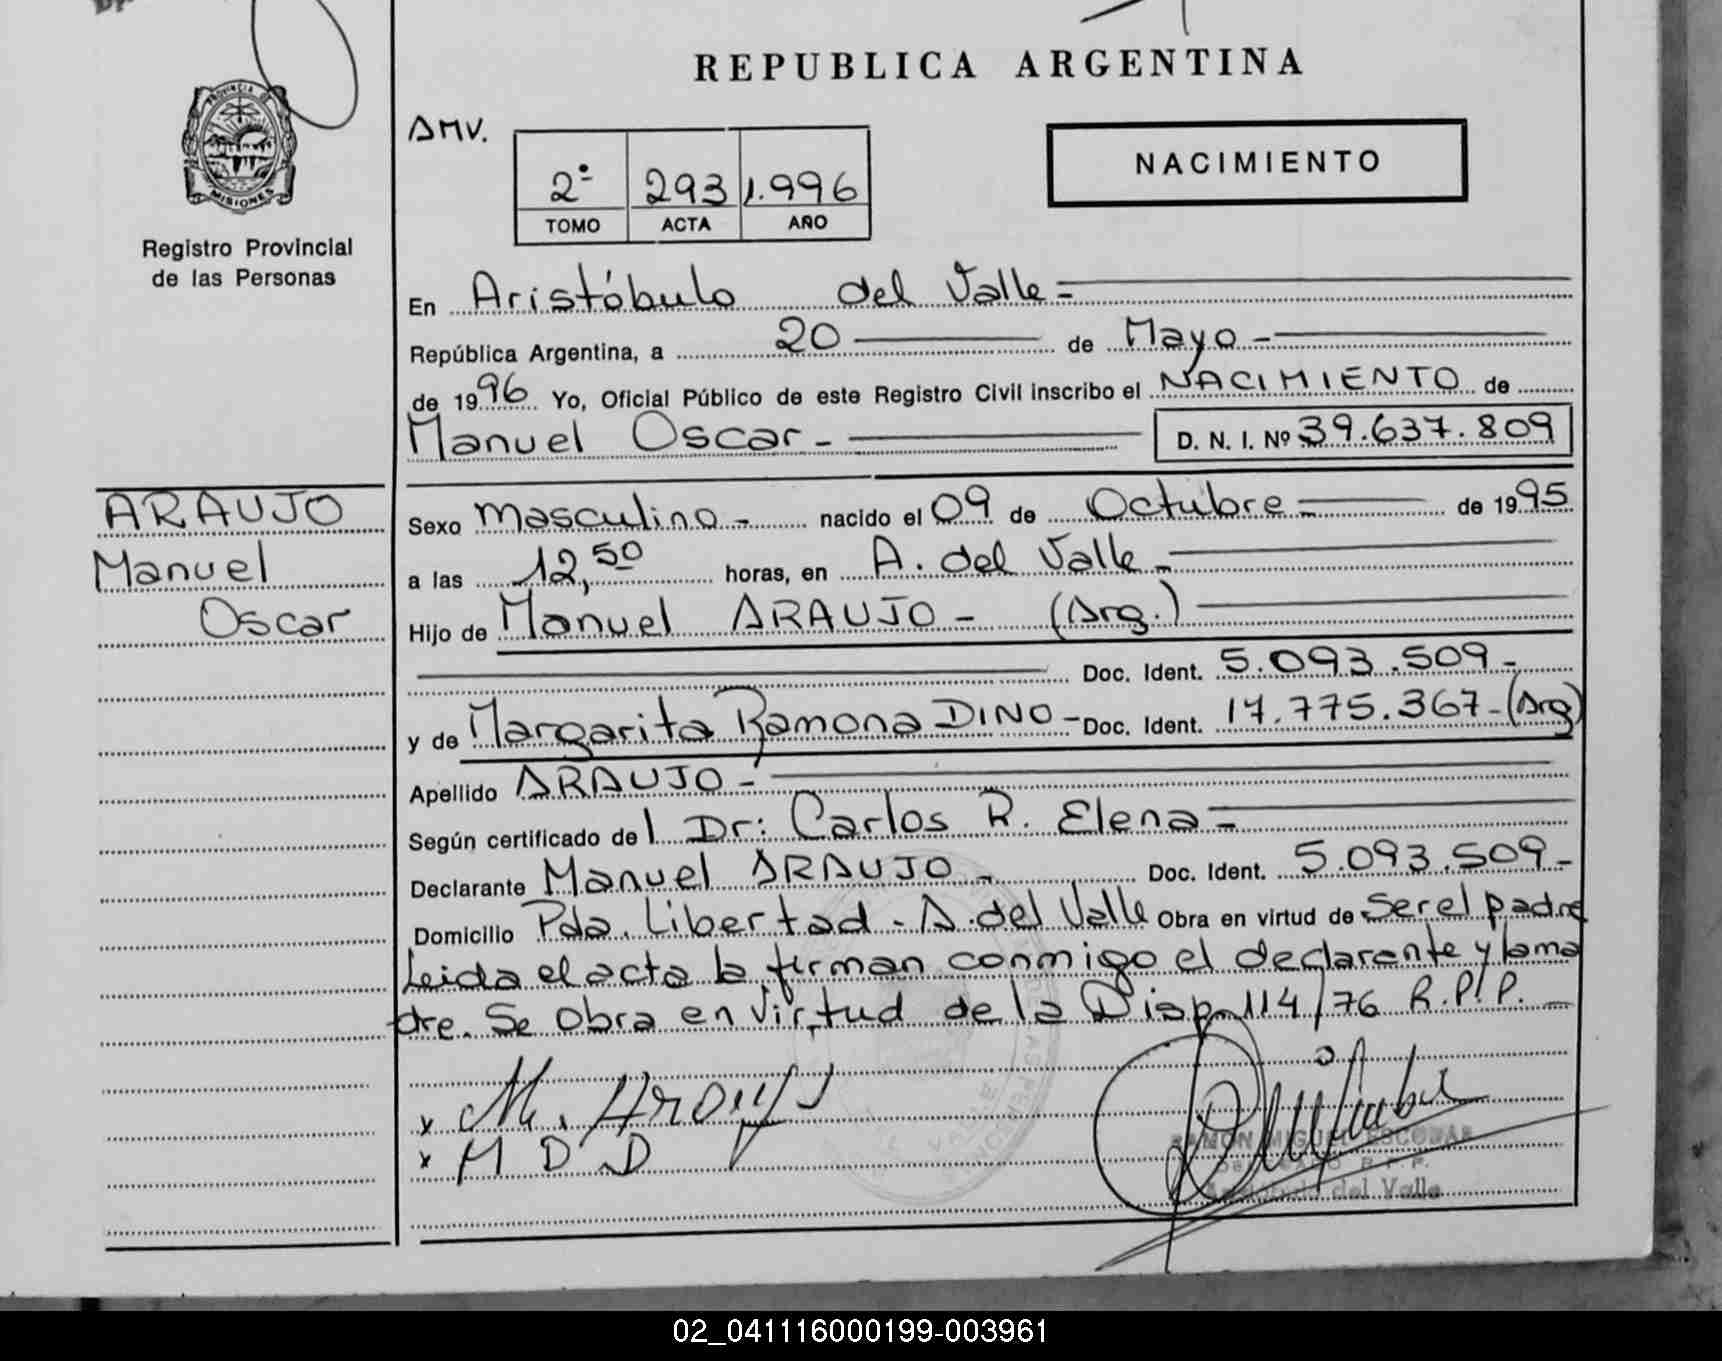 REPUBLICA ARGENTINA
PROVINCIA DE
MISIONES
Registro Provincial
de las Personas
AMV.
2º 293 1.996
TOMO ACTA AÑO
NACIMIENTO
En Aristóbulo del Valle=
República Argentina, a 20 de Mayo-
de 1996 Yo, Oficial Público de este Registro Civil inscribo el NACIMIENTO de
Manuel Oscar- D. N. I. Nº 39.637.809
ARAUJO
Manuel
Oscar
Sexo Masculino- nacido el 09 de Octubre= de 1995
a las 12,50 horas, en A. del Valle-
Hijo de Manuel ARAUJO- (Arg.)
Doc. Ident. 5.093.509-
y de Margarita Ramona DINO- Doc. Ident. 17.775.367-(Arg)
Apellido ARAUJO-
Según certificado del Dr: Carlos R. Elena=
Declarante Manuel ARAUJO- Doc. Ident. 5.093.509-
Domicilio Pda. Libertad-A.del Valle Obra en virtud de Ser el padre
Leida el acta la firman conmigo el declarante y la ma
dre. Se obra en virtud de la Disp. 114/76 R.P.P.-
x M. Araujo
x M D D
RAMON MIGUEL ESCOBAR
DELEGADO R.P.P.
Aristóbulo del Valle
02_041116000199-003961